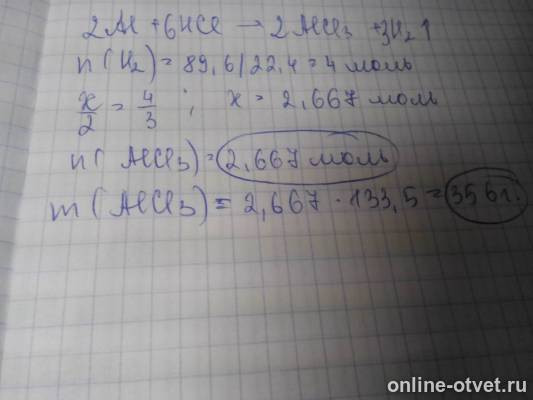 2Al + 6HCl → 2AlCl₃ + 3H₂↑
n(H₂) = 89,6/22,4 = 4 моль
x/2 = 4/3 ; x = 2,667 моль
n(AlCl₃) = 2,667 моль
m(AlCl₃) = 2,667 · 133,5 = 356 г.
online-otvet.ru